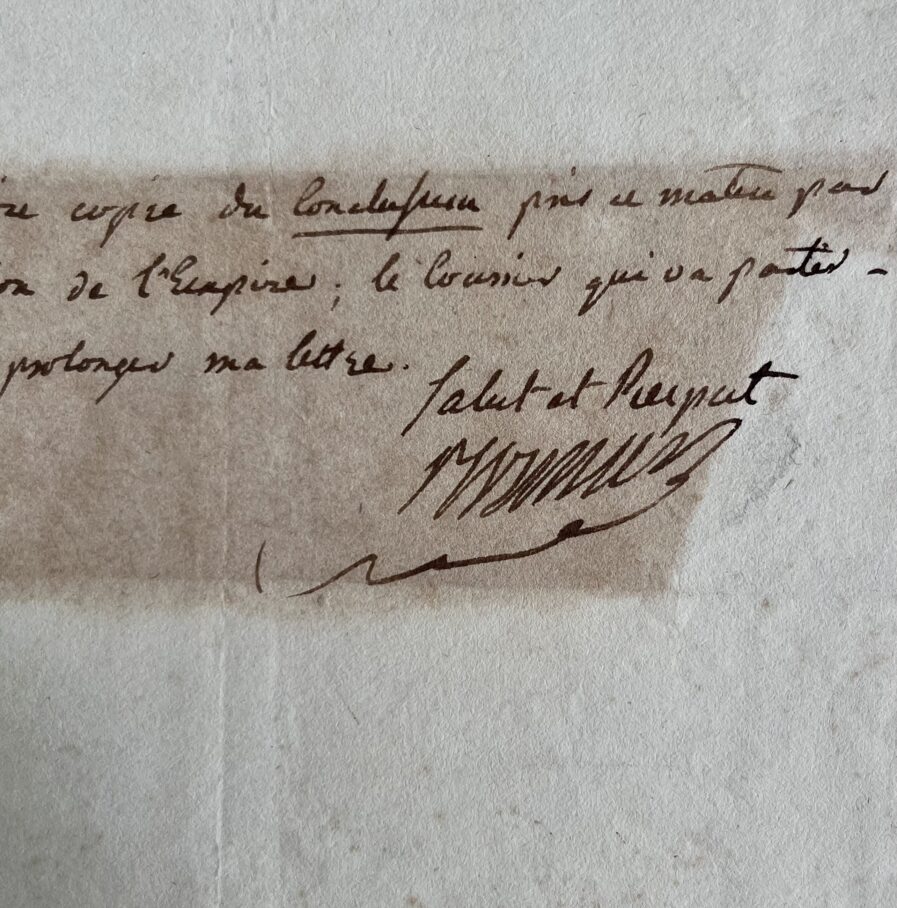 copie du Conclusum pris ce matin par
de l'Empire; le courier qui va partir -
prolonger ma lettre.
Salut et Respect